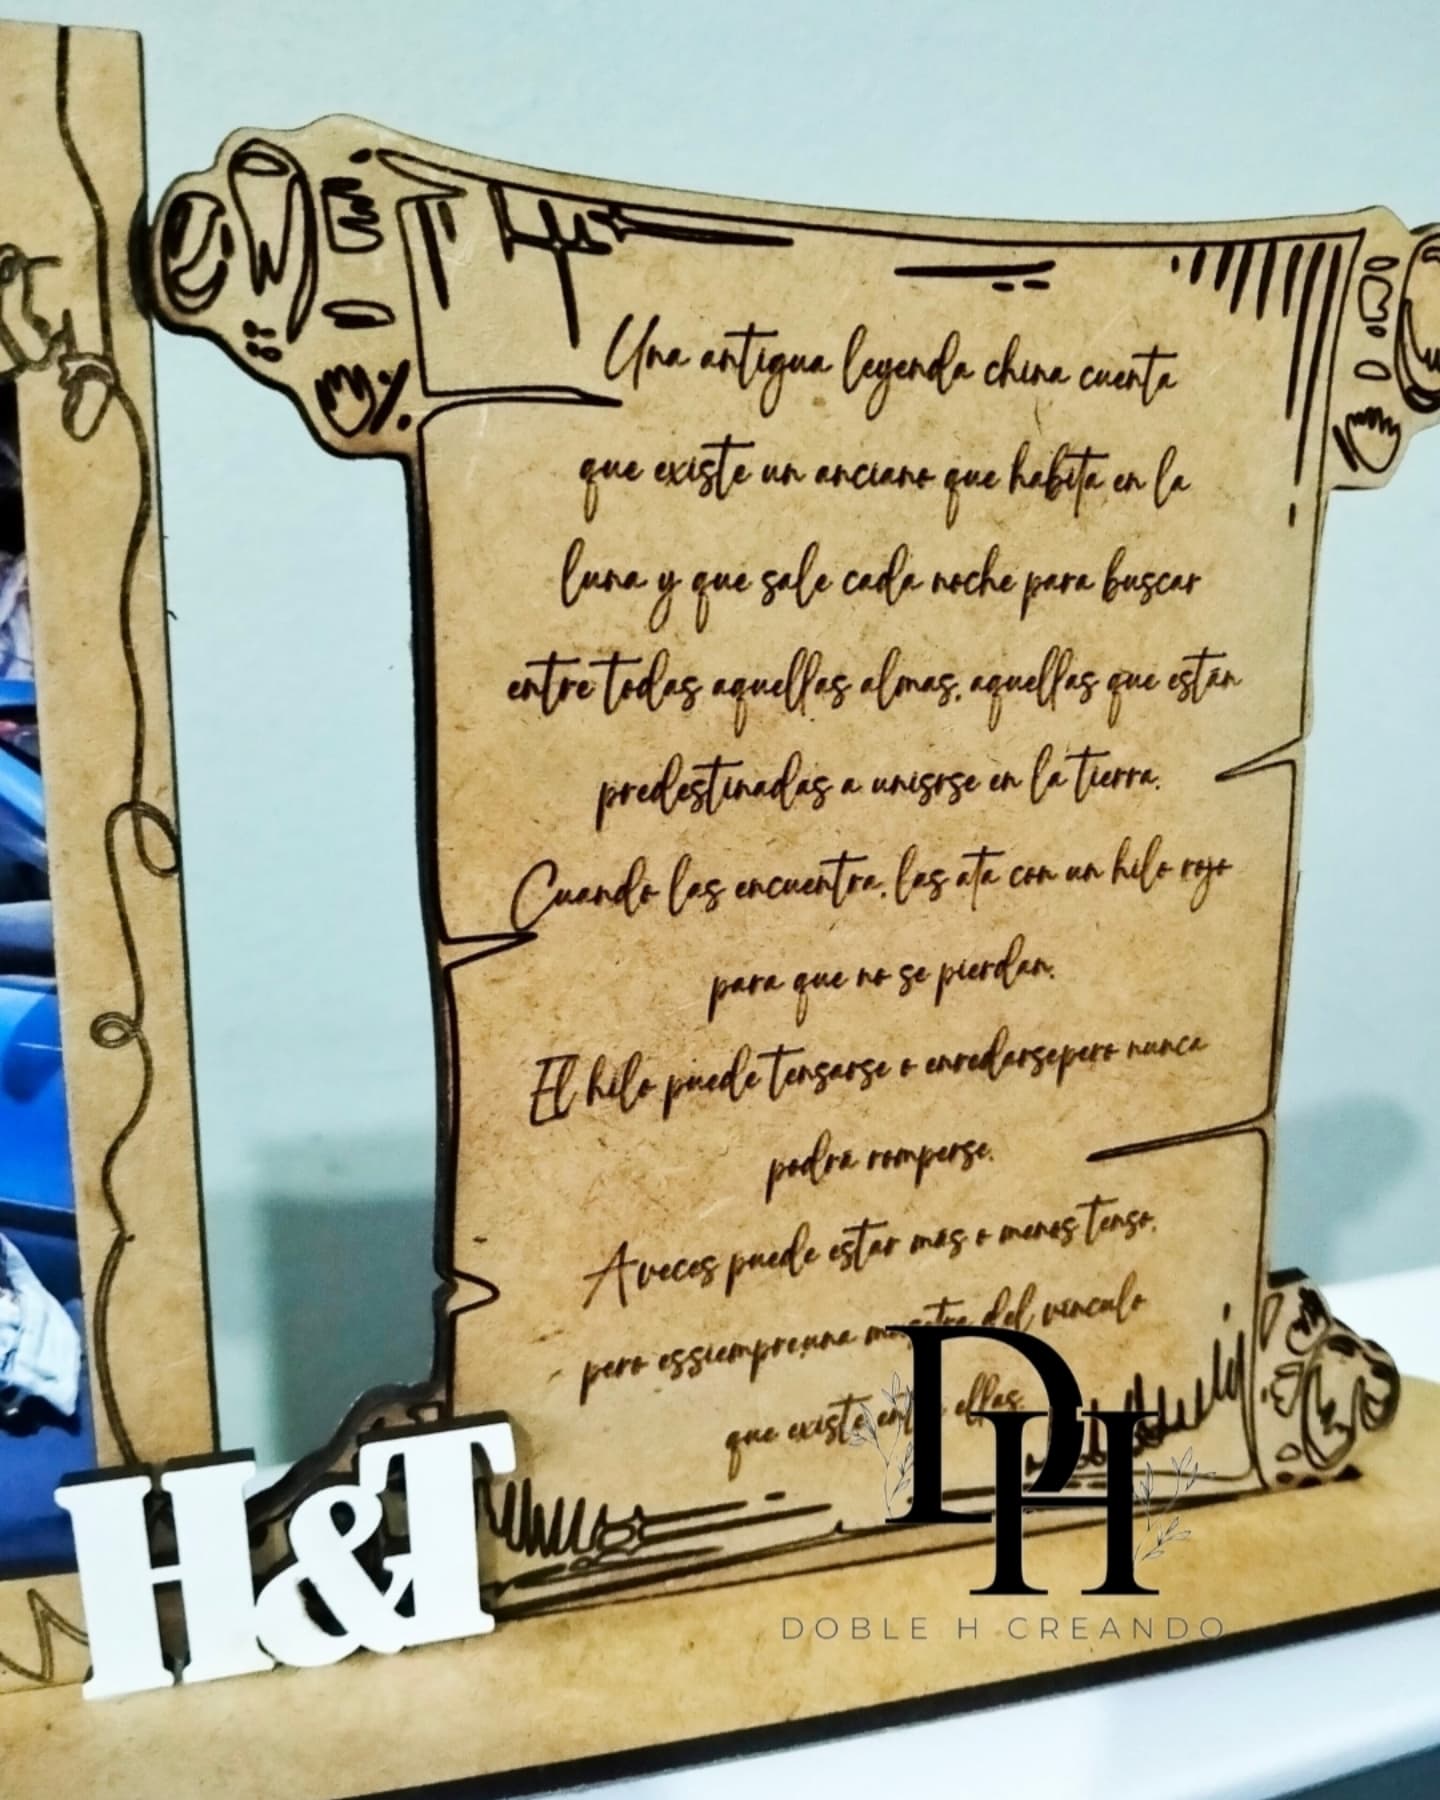 Una antigua leyenda china cuenta
que existe un anciano que habita en la
luna y que sale cada noche para buscar
entre todas aquellas almas, aquellas que están
predestinadas a unisrse en la tierra.
Cuando las encuentra, las ata con un hilo rojo
para que no se pierdan.
El hilo puede tensarse o enredarsepero nunca
podrá romperse.
A veces puede estar más o menos tenso,
pero essiempreuna del vínculo
que existe ellas.
H&T
DH
DOBLE H CREANDO